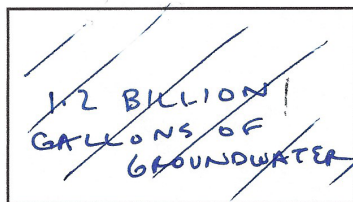 1.2 BILLION
GALLONS OF
GROUNDWATER